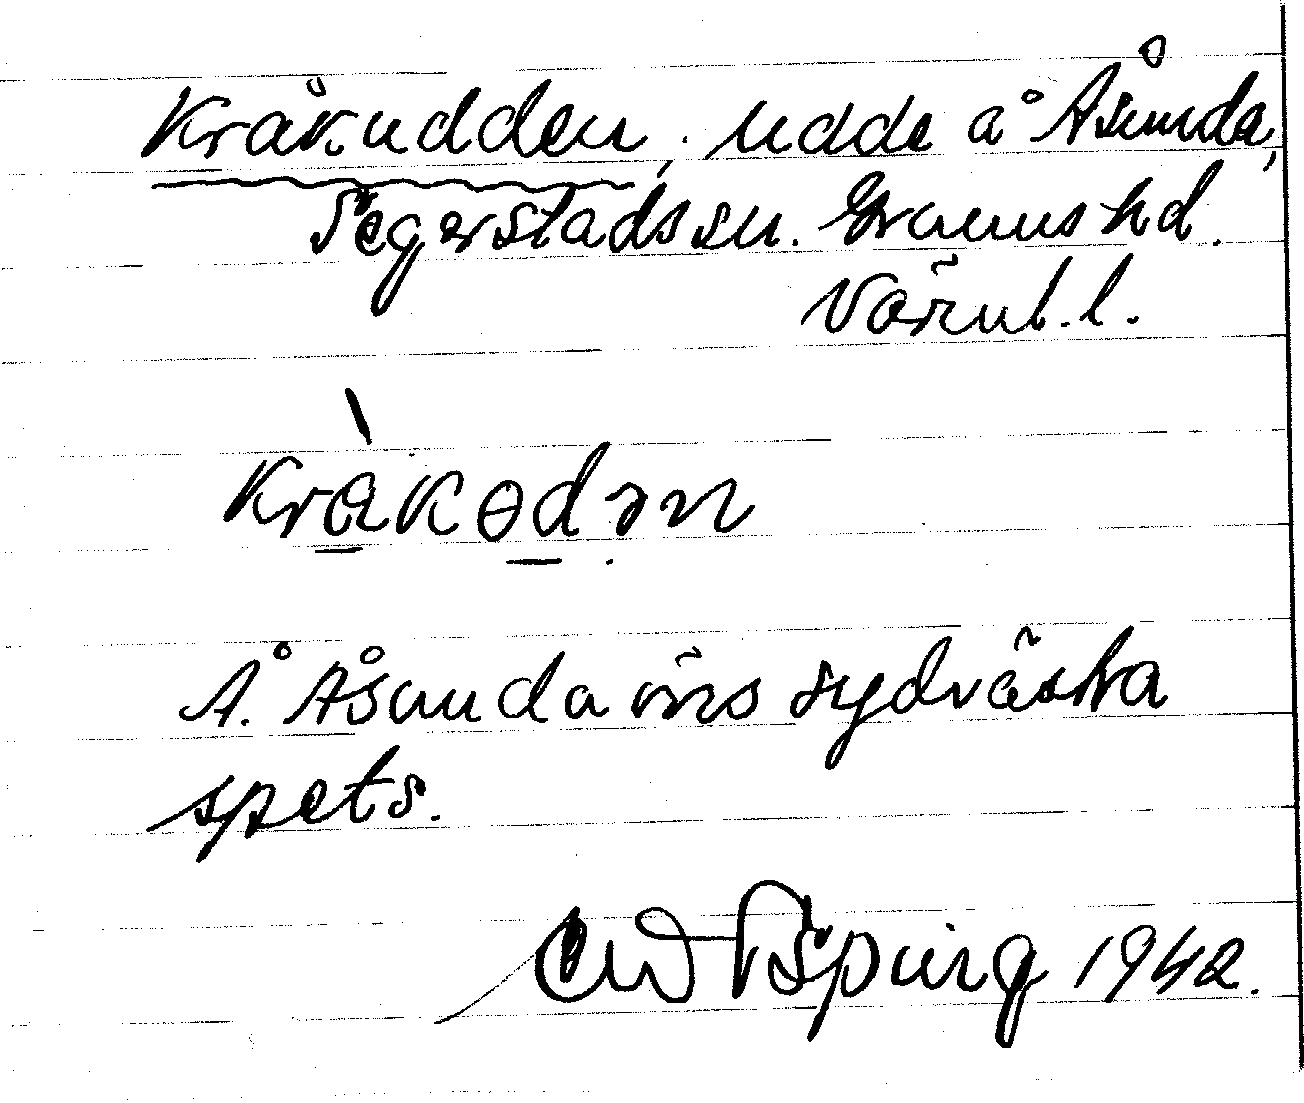 Kråkudden, udde å Åsunda,
Segerstads sn. Grums hd.
Värml. l.
Kråkɵdən
Å. Åsundaöns sydvästra
spets.
1942.